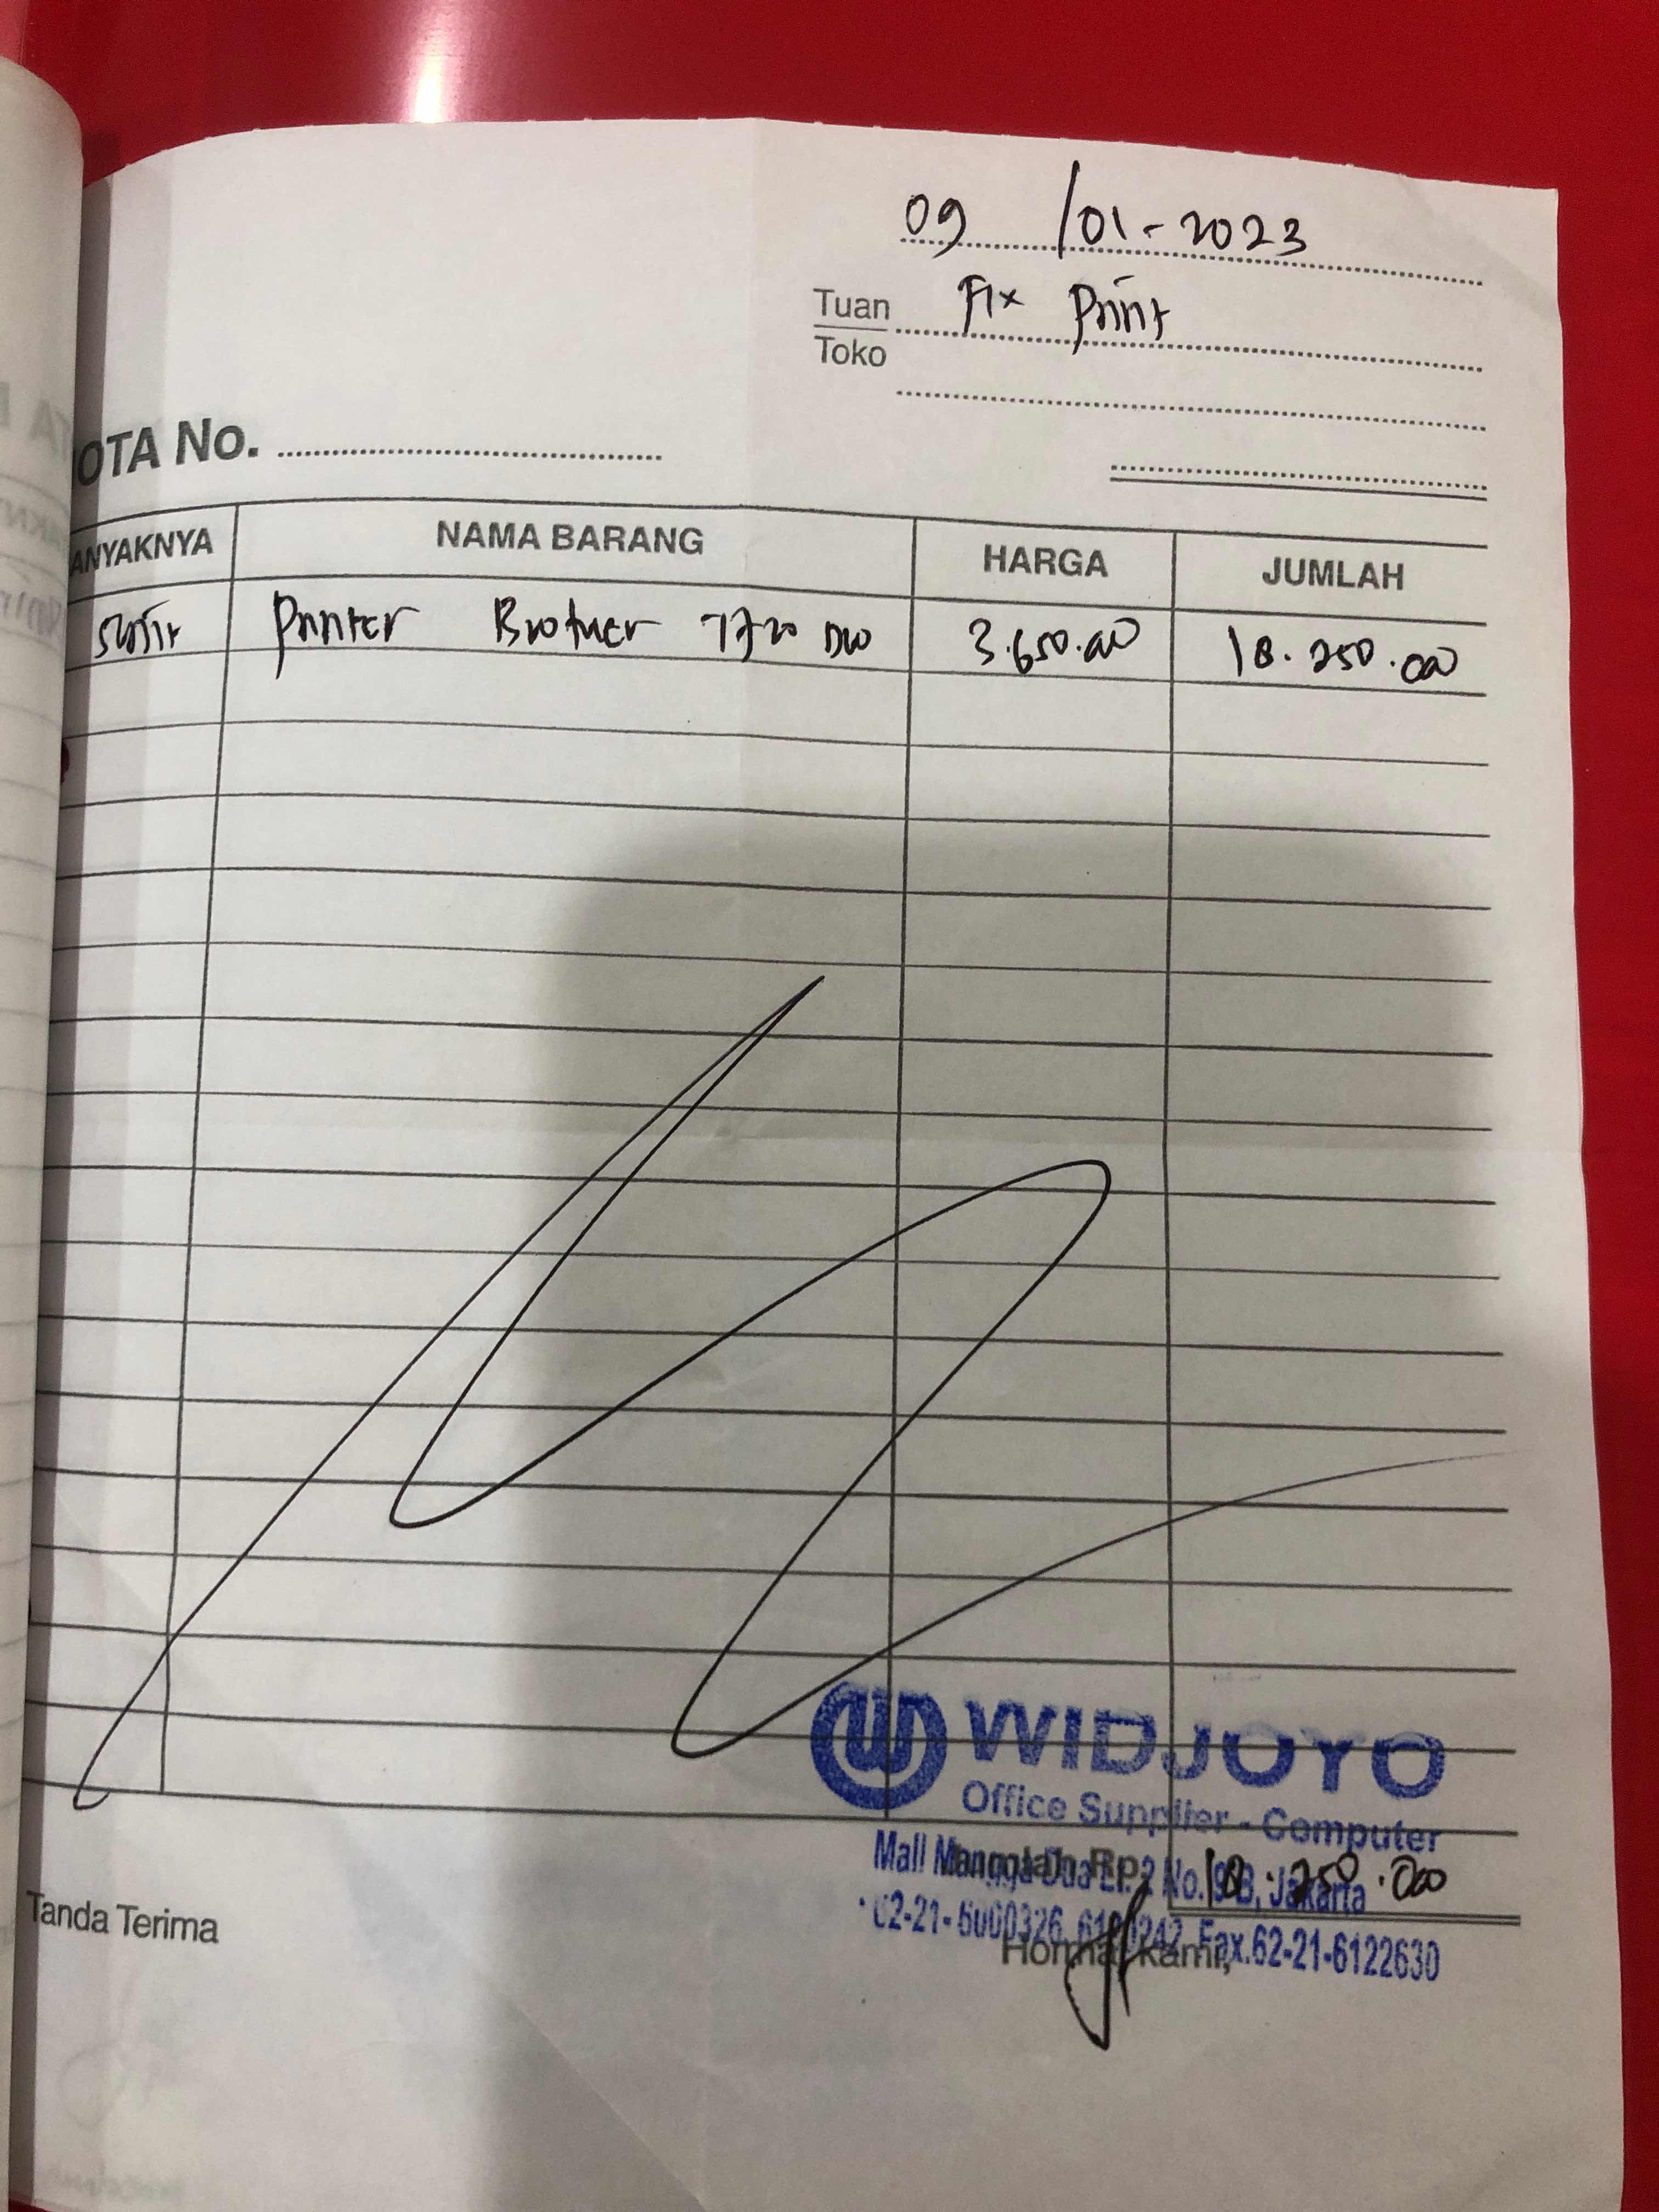 09 /01-2023
Tuan Fix Print
Toko
OTA No.
ANYAKNYA NAMA BARANG HARGA JUMLAH
5 Unit Printer Brother T720 DW 3.650.000 18.250.000
WIDJOYO
Office Supplier - Computer
Mall Mangga Dua Lt. 2 No. 9 B, Jakarta
Jumlah Rp. 18.250.000
62-21-6000326, Fax.62-21-6122630
Tanda Terima
Hormat kami,